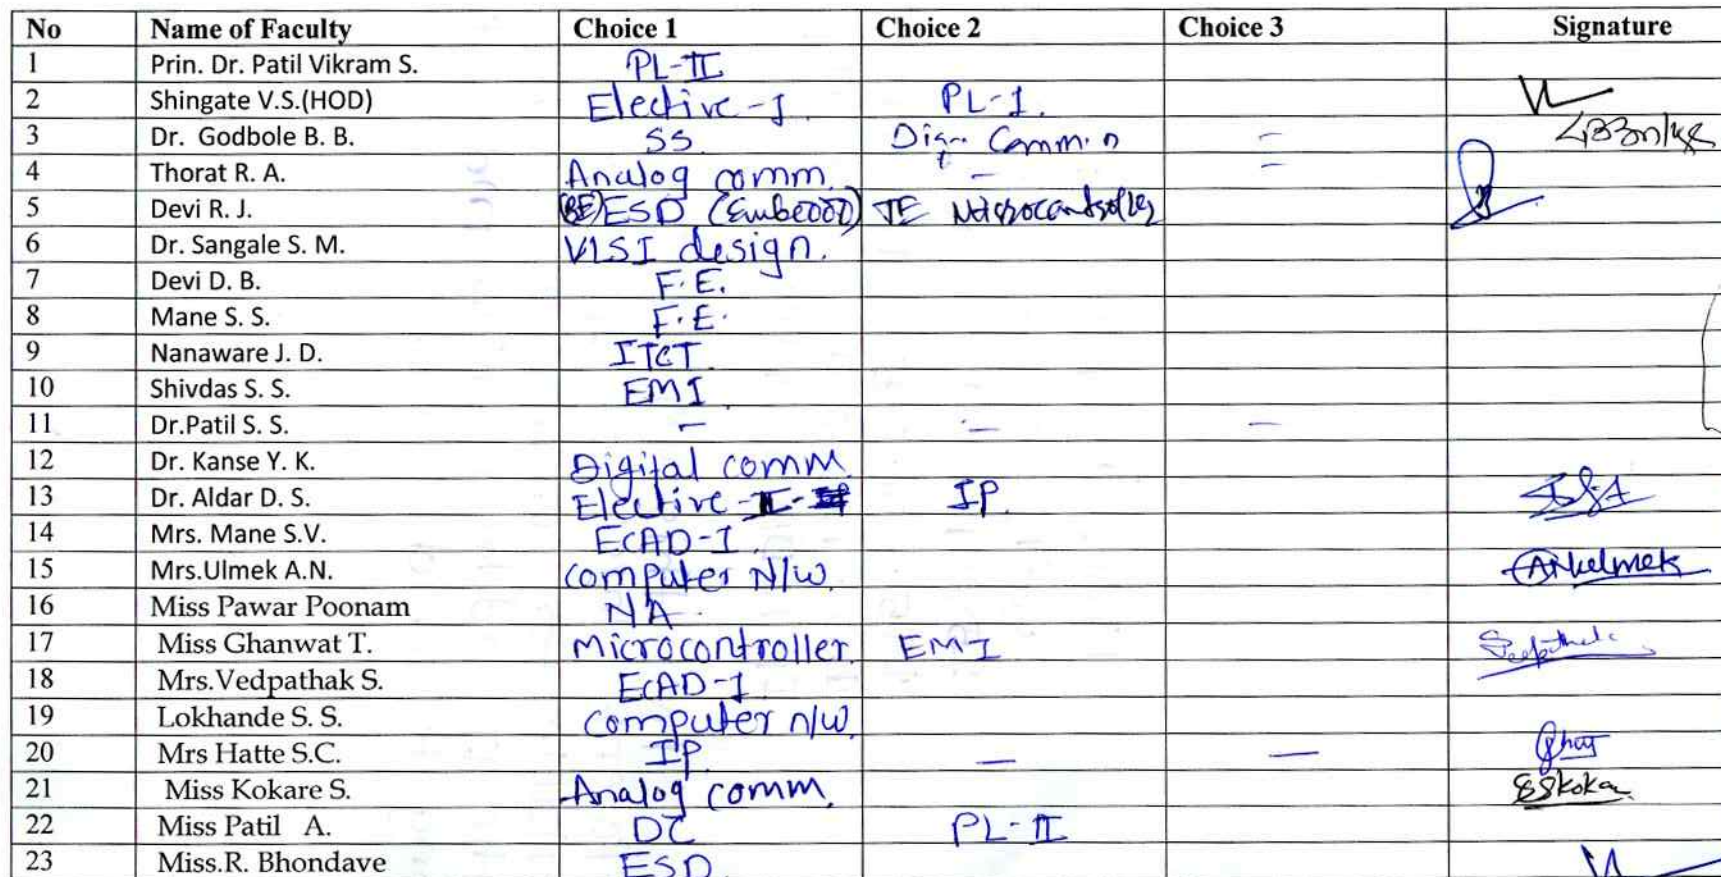 No Name of Faculty Choice 1 Choice 2 Choice 3 Signature
1 Prin. Dr. Patil Vikram S. PL-II
2 Shingate V.S.(HOD) Elective-I PL-I.
3 Dr. Godbole B. B. SS Comm.n -
4 Thorat R. A. Analog comm. - -
5 Devi R. J. (BE) ESD TE Microcontroller
6 Dr. Sangale S. M. VLSI design.
7 Devi D. B. F.E.
8 Mane S. S. F.E.
9 Nanaware J. D. ITCT
10 Shivdas S. S. EMI
11 Dr.Patil S. S. - - -
12 Dr. Kanse Y. K. Digital comm
13 Dr. Aldar D. S. Elective IP
14 Mrs. Mane S.V. ECAD-I.
15 Mrs.Ulmek A.N. Computer N/W.
16 Miss Pawar Poonam NA.
17 Miss Ghanwat T. Microcontroller EMI
18 Mrs.Vedpathak S. ECAD-I
19 Lokhande S. S. Computer n/w.
20 Mrs Hatte S.C. IP — —
21 Miss Kokare S. Analog comm.
22 Miss Patil A. DC PL-II
23 Miss.R. Bhondave ESD